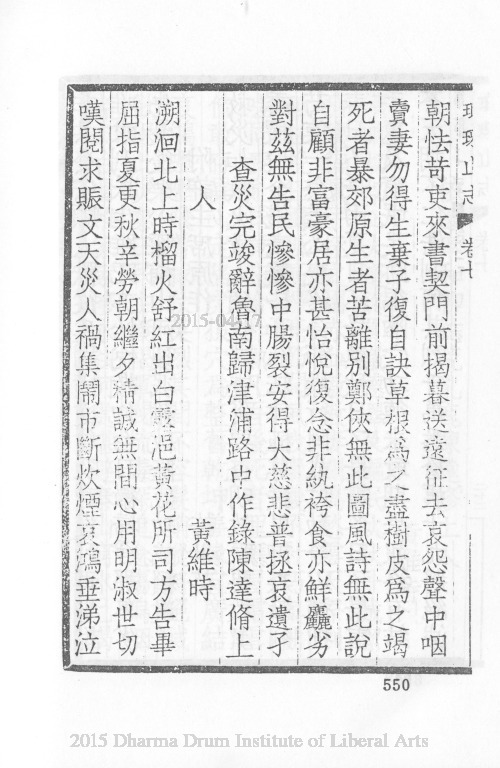 琅琊山志 卷七
朝怯苛吏來書契門前揭暮送遠征去哀怨聲中咽
賣妻勿得生棄子復自訣草根爲之盡樹皮爲之竭
死者暴郊原生者苦離別鄭俠無此圖風詩無此說
自顧非富豪居亦甚怡悅復念非紈袴食亦鮮麤劣
對茲無告民慘慘中腸裂安得大慈悲普拯哀遺孑
查災完竣辭魯南歸津浦路中作錄陳達脩上
人
黃維時
溯洄北上時榴火舒紅出白露浥黃花所司方告畢
屈指夏更秋辛勞朝繼夕精誠無間心用明淑世切
嘆閱求賑文天災人禍集鬧市斷炊煙哀鴻垂涕泣
550
2015-04-17
2015 Dharma Drum Institute of Liberal Arts